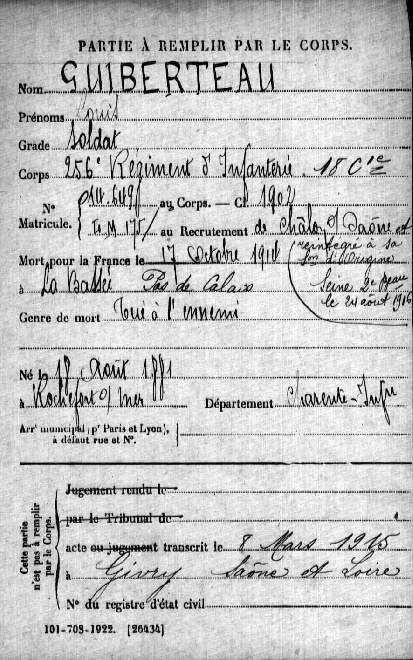 PARTIE À REMPLIR PAR LE CORPS.
Nom GUIBERTEAU
Prénoms Louis
Grade Soldat
Corps 256e Régiment d'Infanterie. 18 Cie
N° 14.649 au Corps. — Cl. 1902
Matricule. 175 au Recrutement de Châlon s/ Saône et
réintégré à sa
Son d'Origine
Seine 2e Beau
le 24 août 1916
Mort pour la France le 17 Octobre 1914
à La Bassée Pas de Calais
Genre de mort Tué à l'ennemi
Né le 18 Août 1881
à Rochefort s/ mer Département Charente-Infre
Arrt municipal (pr Paris et Lyon),
à défaut rue et N°.
Cette partie
n'est pas à remplir
par le Corps.
Jugement rendu le
par le Tribunal de
acte ou jugement transcrit le 8 Mars 1915
à Givry Saône et Loire
N° du registre d'état civil
101-708-1922. [26434]